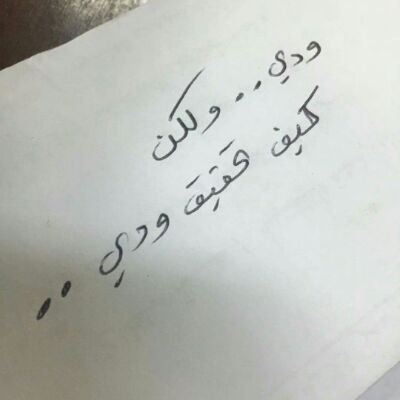 ودي.. ولكن
كيف تحقيق ودي..